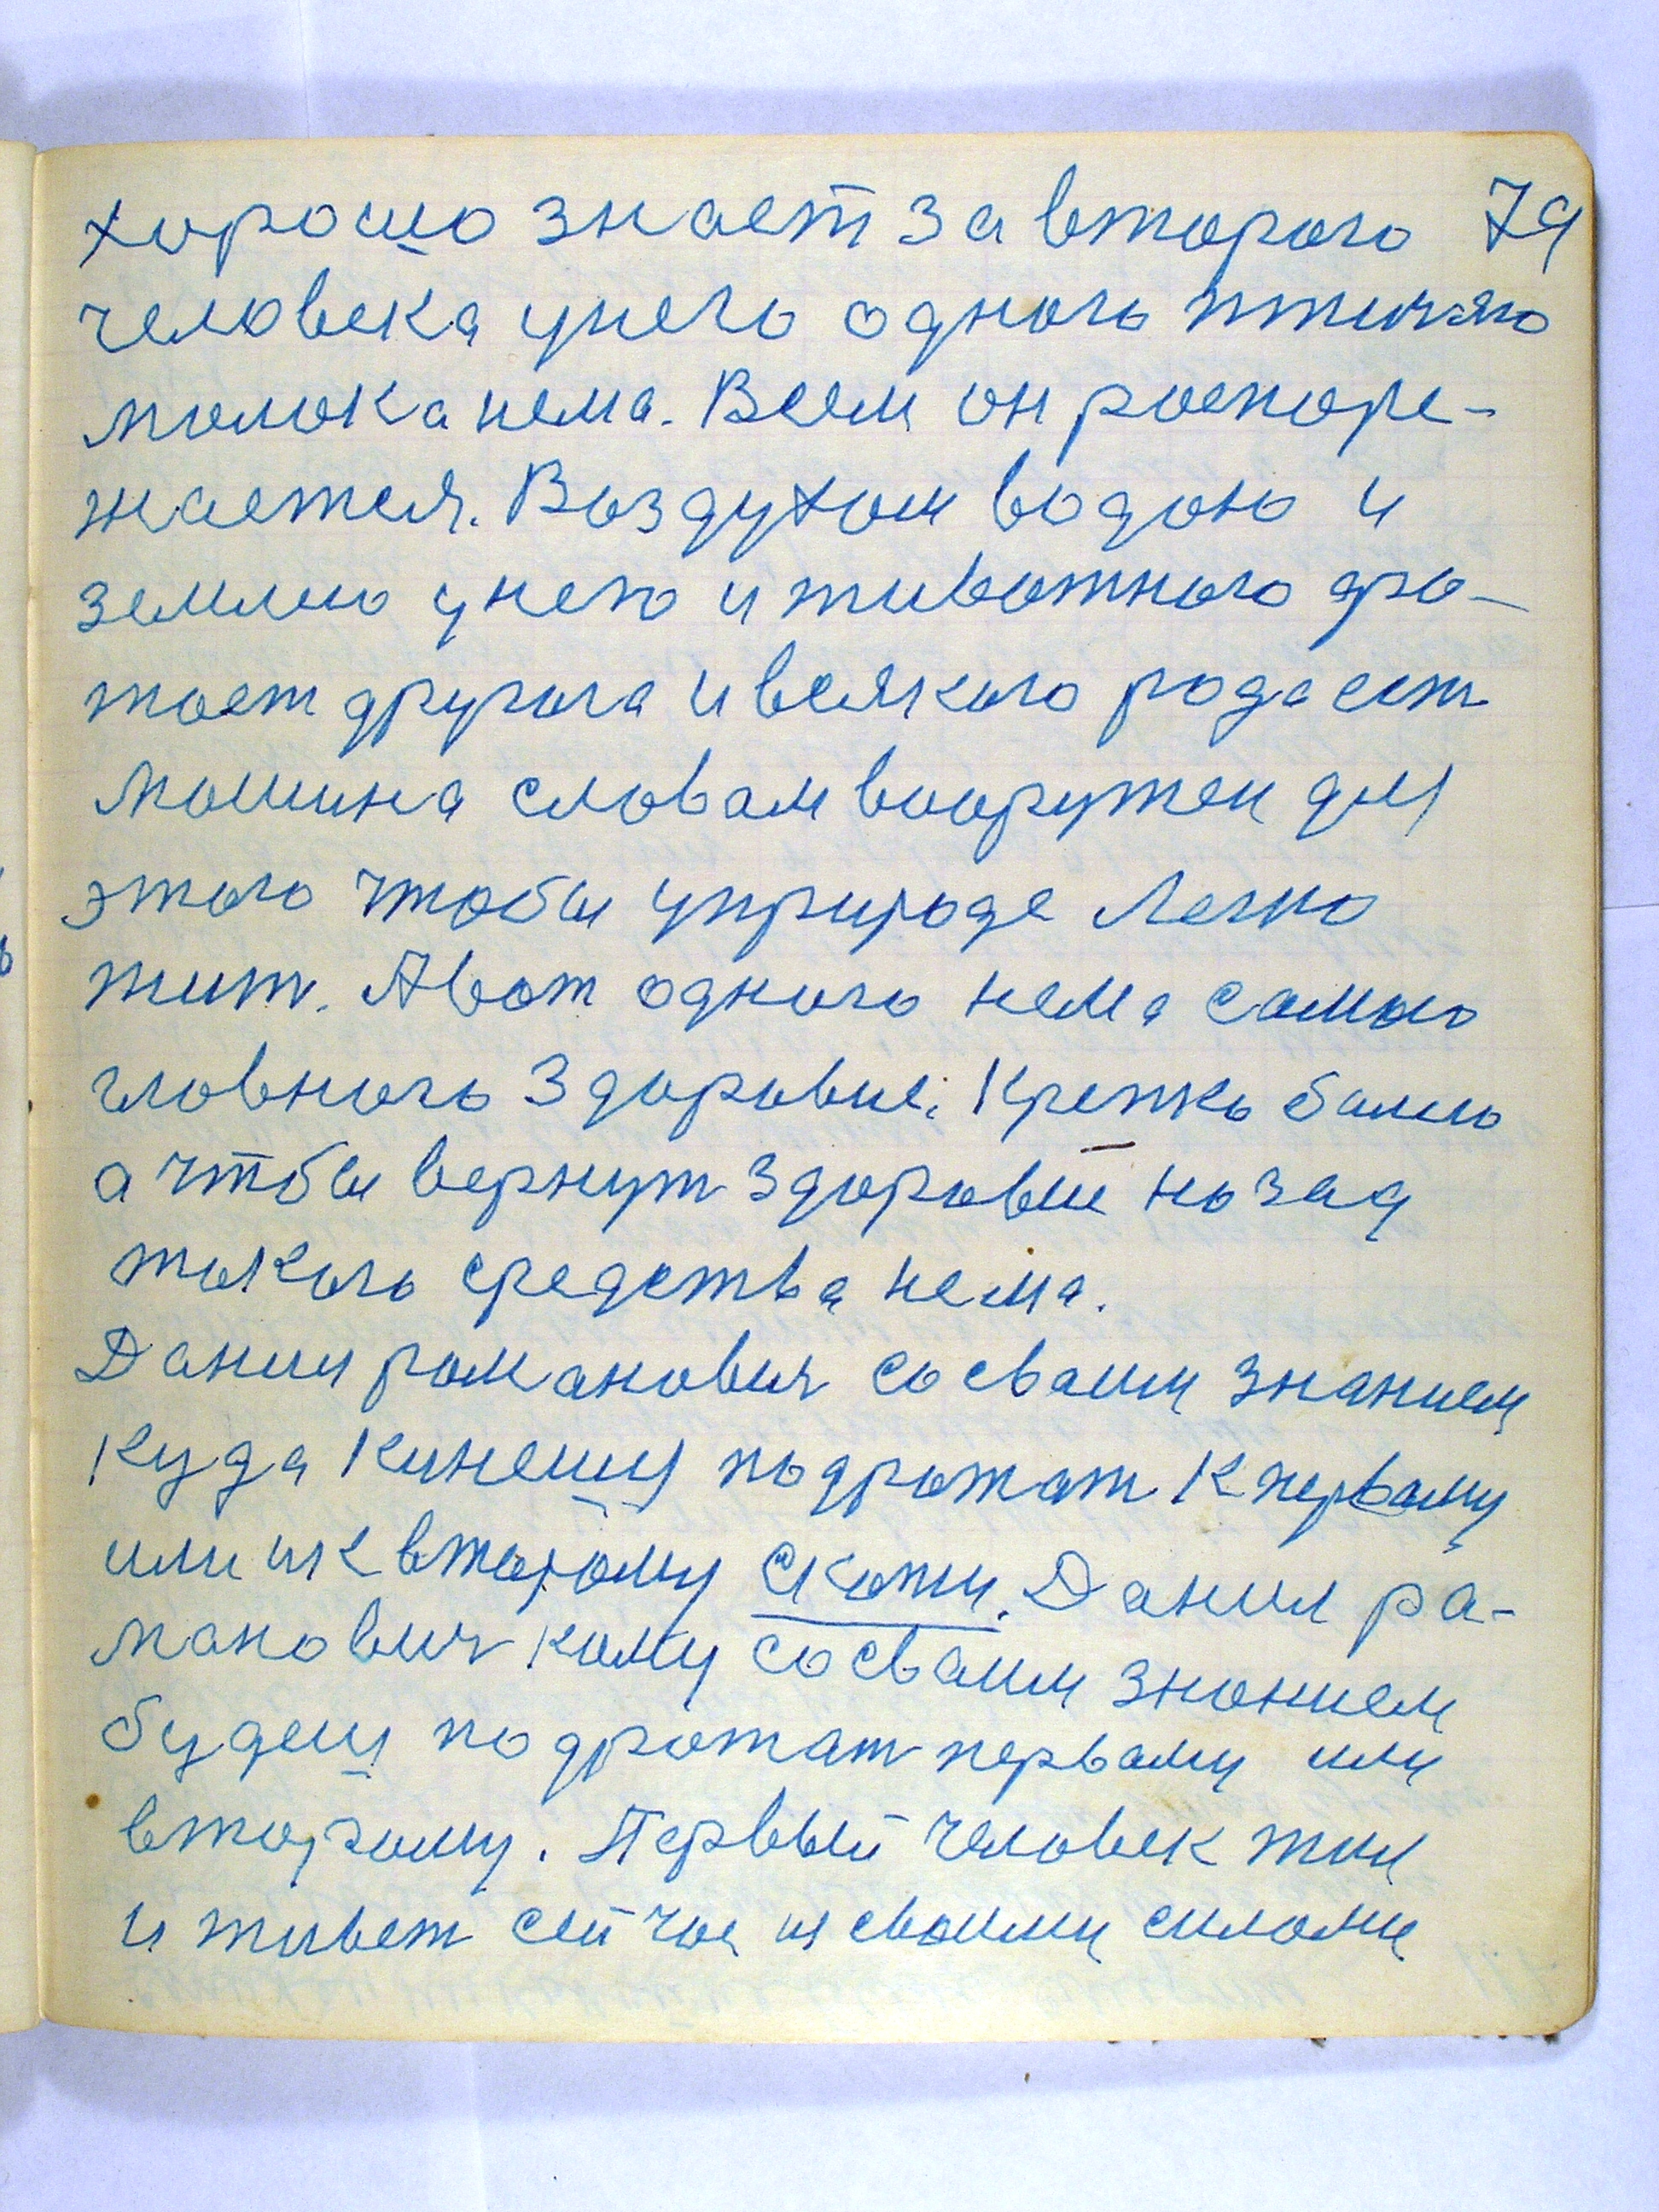 хорошо знает за второго 79
человека унего одного птичяго
молока нема. Всем он распоре-
жается. Воздухом водою и
землею унего и животного дро-
жает другога и всякого рода ест
машина словам вооружен для
этого чтобы уприроде легко
жит. А вот одного нема самого
главного здоровие. Крепко балею
а чтобы вернут здоровие назад
такого средства нема.
Данил романович со сваим знанием
куда кинешся подражат к первому
или ик второму скажи. Данил ра-
манович кому со сваим знанием
будеш подражат первому или
второму. Первый человек жил
и живет сейчас и своими силами